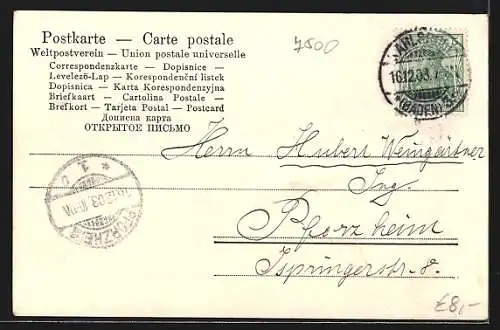 Postkarte — Carte postale
Weltpostverein — Union postale universelle
Correspondenzkarte — Dopisnice —
Levelező-Lap — Korespondenční lístek
Dopisnica — Karta Korespondenzyjna
Briefkaart — Cartolina Postale —
Brefkort — Tarjeta Postal — Postcard
Дописна карта
ОТКРЫТОЕ ПИСЬМО
7500
KARLSRUHE
16.12.03.
(BADEN)
Herrn Hubert Weingärtner
Ing.
Pforzheim
Ispringerstr. 8.
PFORZHEIM
16.12.03.
£8,-